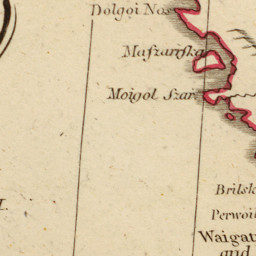 Dolgoi Nos
Maszariska
Moigol Szar
Brilsk
Perwoi
Waigat
and